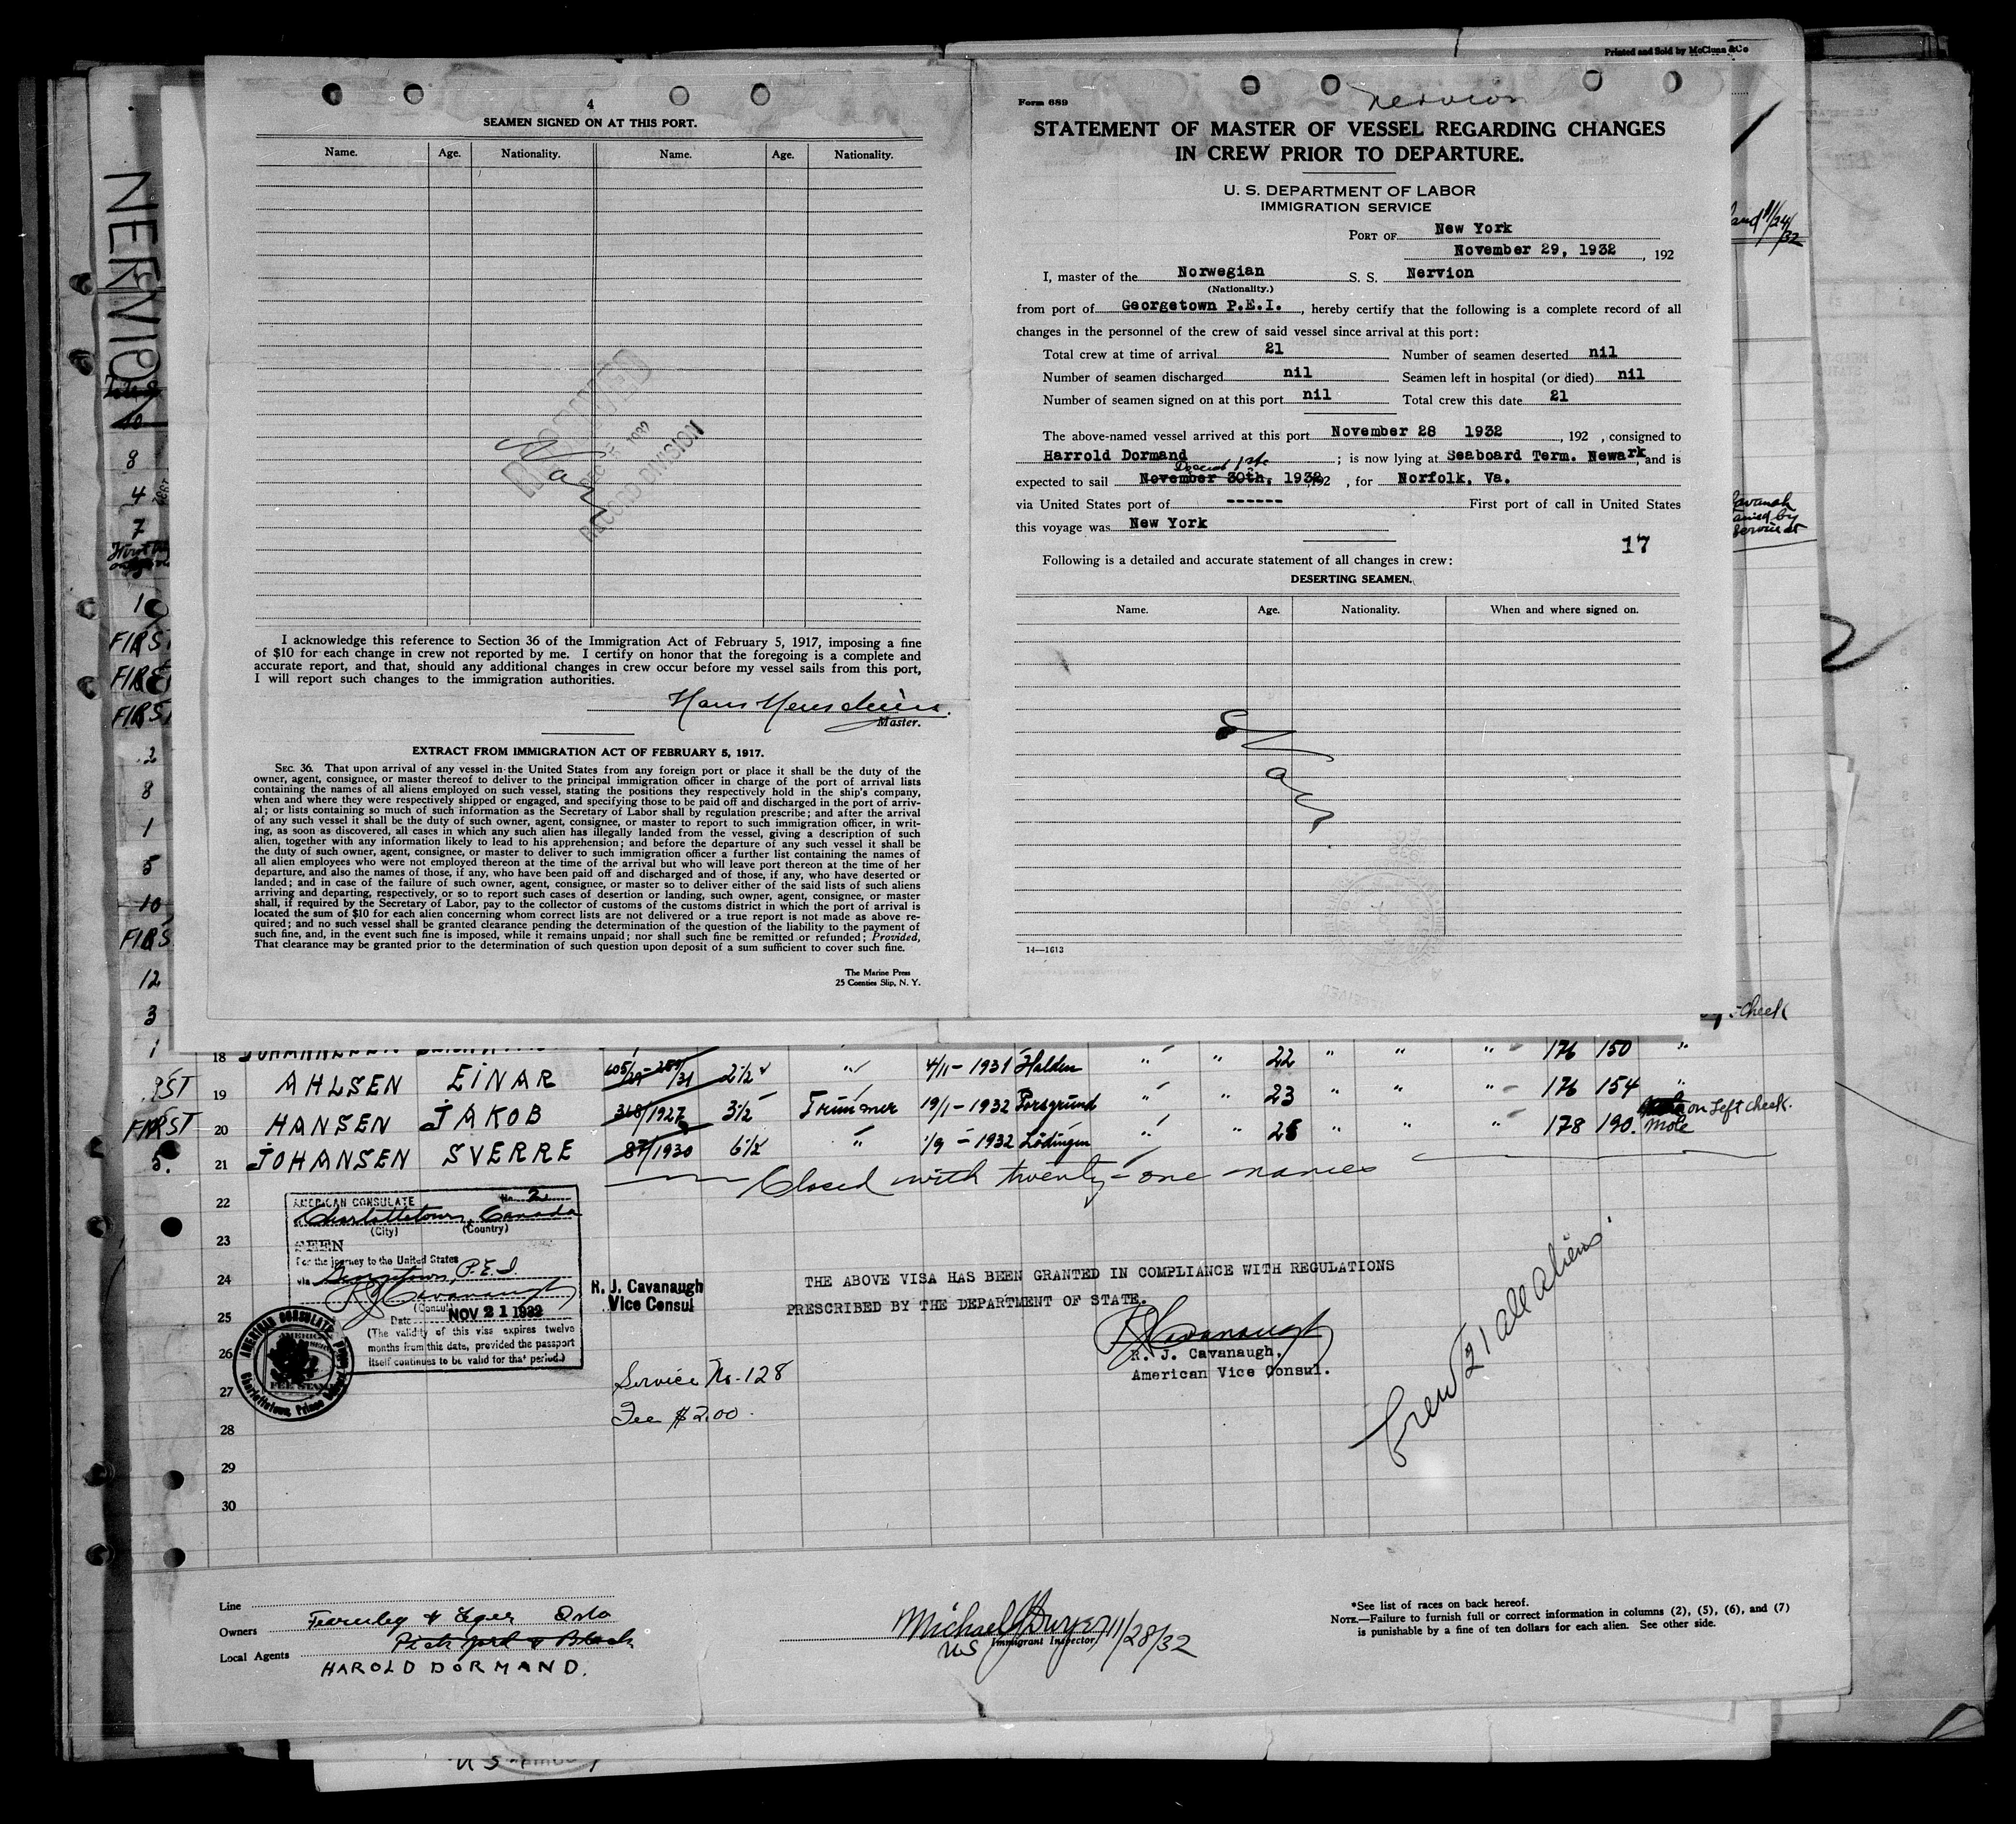 Printed and Sold by McClunn & Co
4
SEAMEN SIGNED ON AT THIS PORT.
Name. Age. Nationality. Name. Age. Nationality.
RECORD DIVISION
I acknowledge this reference to Section 36 of the Immigration Act of February 5, 1917, imposing a fine
of $10 for each change in crew not reported by me. I certify on honor that the foregoing is a complete and
accurate report, and that, should any additional changes in crew occur before my vessel sails from this port,
I will report such changes to the immigration authorities.
Hans
Master.
EXTRACT FROM IMMIGRATION ACT OF FEBRUARY 5, 1917.
SEC. 36. That upon arrival of any vessel in the United States from any foreign port or place it shall be the duty of the
owner, agent, consignee, or master thereof to deliver to the principal immigration officer in charge of the port of arrival lists
containing the names of all aliens employed on such vessel, stating the positions they respectively hold in the ship's company,
when and where they were respectively shipped or engaged, and specifying those to be paid off and discharged in the port of arriv-
al; or lists containing so much of such information as the Secretary of Labor shall by regulation prescribe; and after the arrival
of any such vessel it shall be the duty of such owner, agent, consignee, or master to report to such immigration officer, in writ-
ing, as soon as discovered, all cases in which any such alien has illegally landed from the vessel, giving a description of such
alien, together with any information likely to lead to his apprehension; and before the departure of any such vessel it shall be
the duty of such owner, agent, consignee, or master to deliver to such immigration officer a further list containing the names of
all alien employees who were not employed thereon at the time of the arrival but who will leave port thereon at the time of her
departure, and also the names of those, if any, who have been paid off and discharged and of those, if any, who have deserted or
landed; and in case of the failure of such owner, agent, consignee, or master so to deliver either of the said lists of such aliens
arriving and departing, respectively, or so to report such cases of desertion or landing, such owner, agent, consignee, or master
shall, if required by the Secretary of Labor, pay to the collector of customs of the customs district in which the port of arrival is
located the sum of $10 for each alien concerning whom correct lists are not delivered or a true report is not made as above re-
quired; and no such vessel shall be granted clearance pending the determination of the question of the liability to the payment of
such fine, and, in the event such fine is imposed, while it remains unpaid; nor shall such fine be remitted or refunded; Provided,
That clearance may be granted prior to the determination of such question upon deposit of a sum sufficient to cover such fine.
The Marine Press
25 Coenties Slip, N. Y.
Form 689
Nervion
STATEMENT OF MASTER OF VESSEL REGARDING CHANGES
IN CREW PRIOR TO DEPARTURE.
U. S. DEPARTMENT OF LABOR
IMMIGRATION SERVICE
PORT OF New York
November 29, 1932, 192
I, master of the Norwegian S. S. Nervion
(Nationality.)
from port of Georgetown P.E.I., hereby certify that the following is a complete record of all
changes in the personnel of the crew of said vessel since arrival at this port:
Total crew at time of arrival 21 Number of seamen deserted nil
Number of seamen discharged nil Seamen left in hospital (or died) nil
Number of seamen signed on at this port nil Total crew this date 21
The above-named vessel arrived at this port November 28 1932, 192 , consigned to
Harrold Dormand; is now lying at Seaboard Term. Newark, and is
expected to sail November 30th, 1932, 192 , for Norfolk, Va.
via United States port of ------ First port of call in United States
this voyage was New York
17
Following is a detailed and accurate statement of all changes in crew:
DESERTING SEAMEN.
Name. Age. Nationality. When and where signed on.
14—1613
NERVION
8
4
7
FIRST
FIRST
FIRST
2
8
1
5
10
FIRST
12
3
check
1 18 22 " " " 176 150 "
19 AHLSEN EINAR 2 1/2 " 4/11 - 1931 Halden " " 23 " " " 176 154 "
FIRST 20 HANSEN JAKOB 318/1927 3 1/2 Trimmer 19/1 - 1932 Porsgrund " " " " " 178 190. Mole on Left cheek.
5. 21 JOHANSEN SVERRE 87/1930 6 1/2 " 1/9 - 1932 Lödingen "
Closed with twenty-one names
22
23
24
25
26
27
28
29
30
AMERICAN CONSULATE No. 2
Charlottetown, Canada
(City) (Country)
SEEN
For the journey to the United States
via Georgetown, P.E.I
RJ Cavanaugh
(Consul)
Date NOV 21 1932
(The validity of this visa expires twelve
months from this date, provided the passport
itself continues to be valid for that period.)
R. J. Cavanaugh
Vice Consul
THE ABOVE VISA HAS BEEN GRANTED IN COMPLIANCE WITH REGULATIONS
PRESCRIBED BY THE DEPARTMENT OF STATE.
RJ Cavanaugh
R. J. Cavanaugh,
American Vice Consul.
Service No. 128
Fee $2.00
Crew 21 all aliens
Line
Owners Fearnley & Eger Oslo
Pickford & Black
Local Agents HAROLD DORMAND.
Michael J Dwyer 11/28/32
US Immigrant Inspector
*See list of races on back hereof.
NOTE.—Failure to furnish full or correct information in columns (2), (5), (6), and (7)
is punishable by a fine of ten dollars for each alien. See other side.